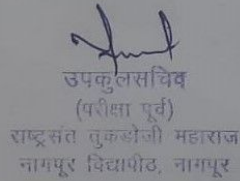 उपकुलसचिव
(परीक्षा पूर्व)
राष्ट्रसंत तुकडोजी महाराज
नागपूर विद्यापीठ, नागपूर